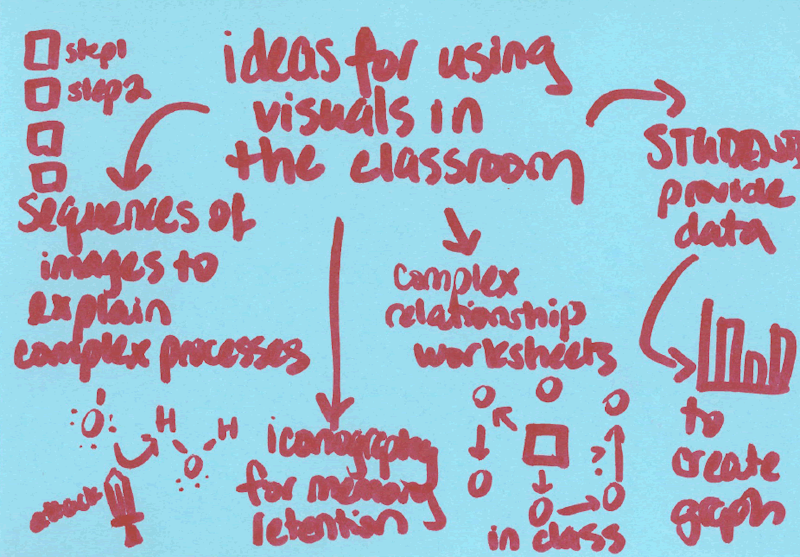 step1
step2
ideas for using
visuals in
the classroom
Sequences of
images to
explain
complex processes
O
H
H
O
attack
iconography
for memory
retention
complex
relationship
worksheets
?
in class
STUDENTS
provide
data
to
create
graph